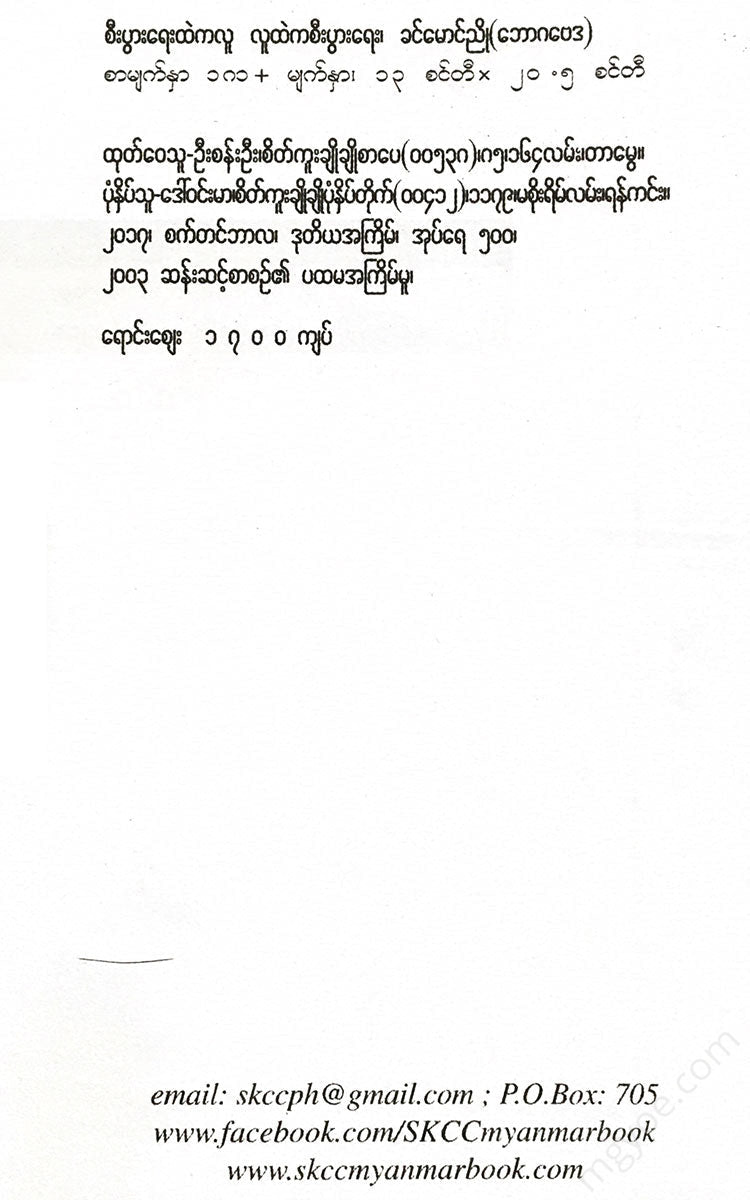 စီးပွားရေးထဲကလူ လူထဲကစီးပွားရေး၊ ခင်မောင်ညို(ဘောဂဗေဒ)
စာမျက်နှာ ၁၈၁+ မျက်နှာ၊ ၁၃ စင်တီ× ၂၀.၅ စင်တီ
ထုတ်ဝေသူ-ဦးစန်းဦး၊စိတ်ကူးချိုချိုစာပေ(၀၀၅၃၈)၊၈၅၊၁၆၄လမ်း၊တာမွေ။
ပုံနှိပ်သူ-ဒေါ်ဝင်းမာ၊စိတ်ကူးချိုချိုပုံနှိပ်တိုက်(၀၀၄၁၂)၊၁၁၇၉၊မစိုးရိမ်လမ်း၊ရန်ကင်း။
၂၀၁၇၊ စက်တင်ဘာလ၊ ဒုတိယအကြိမ်၊ အုပ်ရေ ၅၀၀၊
၂၀၀၃ ဆန်းဆင့်စာစဉ်၏ ပထမအကြိမ်မူ၊
ရောင်းဈေး ၁ ၇ ၀ ၀ ကျပ်
email: skccph@gmail.com ; P.O.Box: 705
www.facebook.com/SKCCmyanmarbook
www.skccmyanmarbook.com